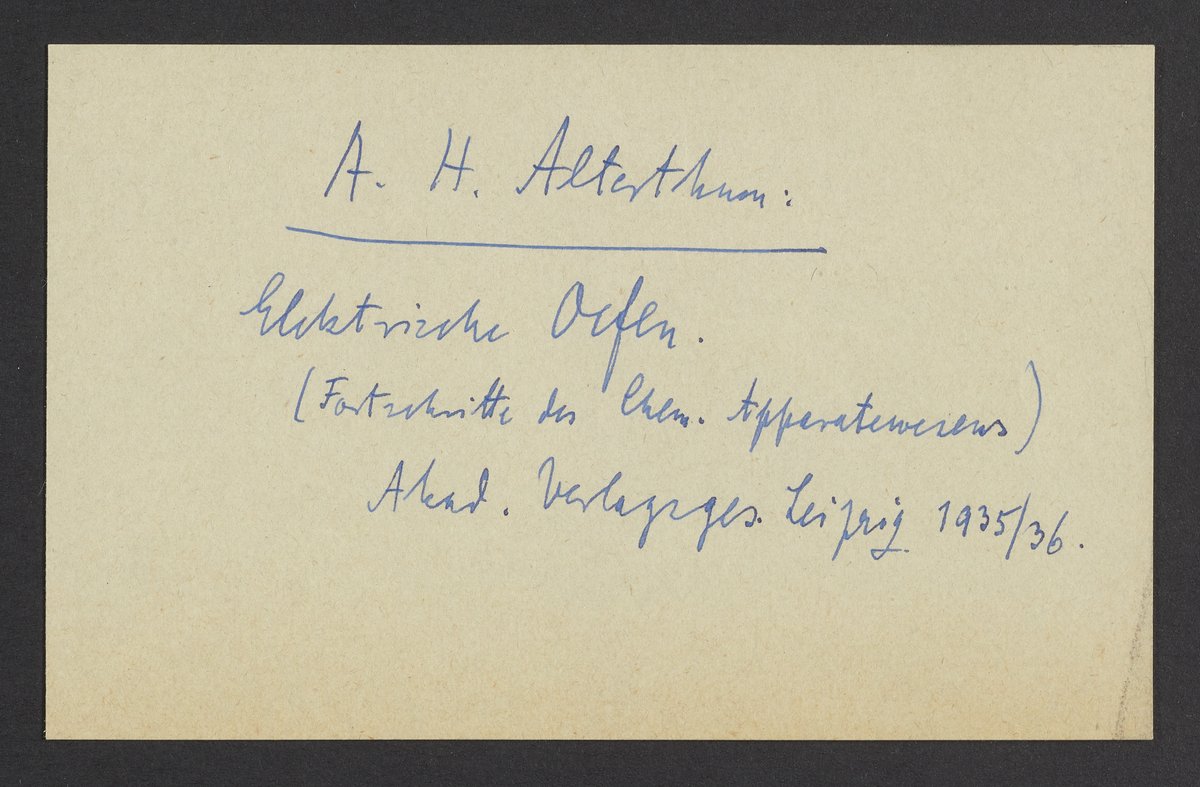 A. H. Alterthum:
Elektrische Oefen.
(Fortschritte des Chem. Apparatewesens)
Akad. Verlagsges. Leipzig 1935/36.